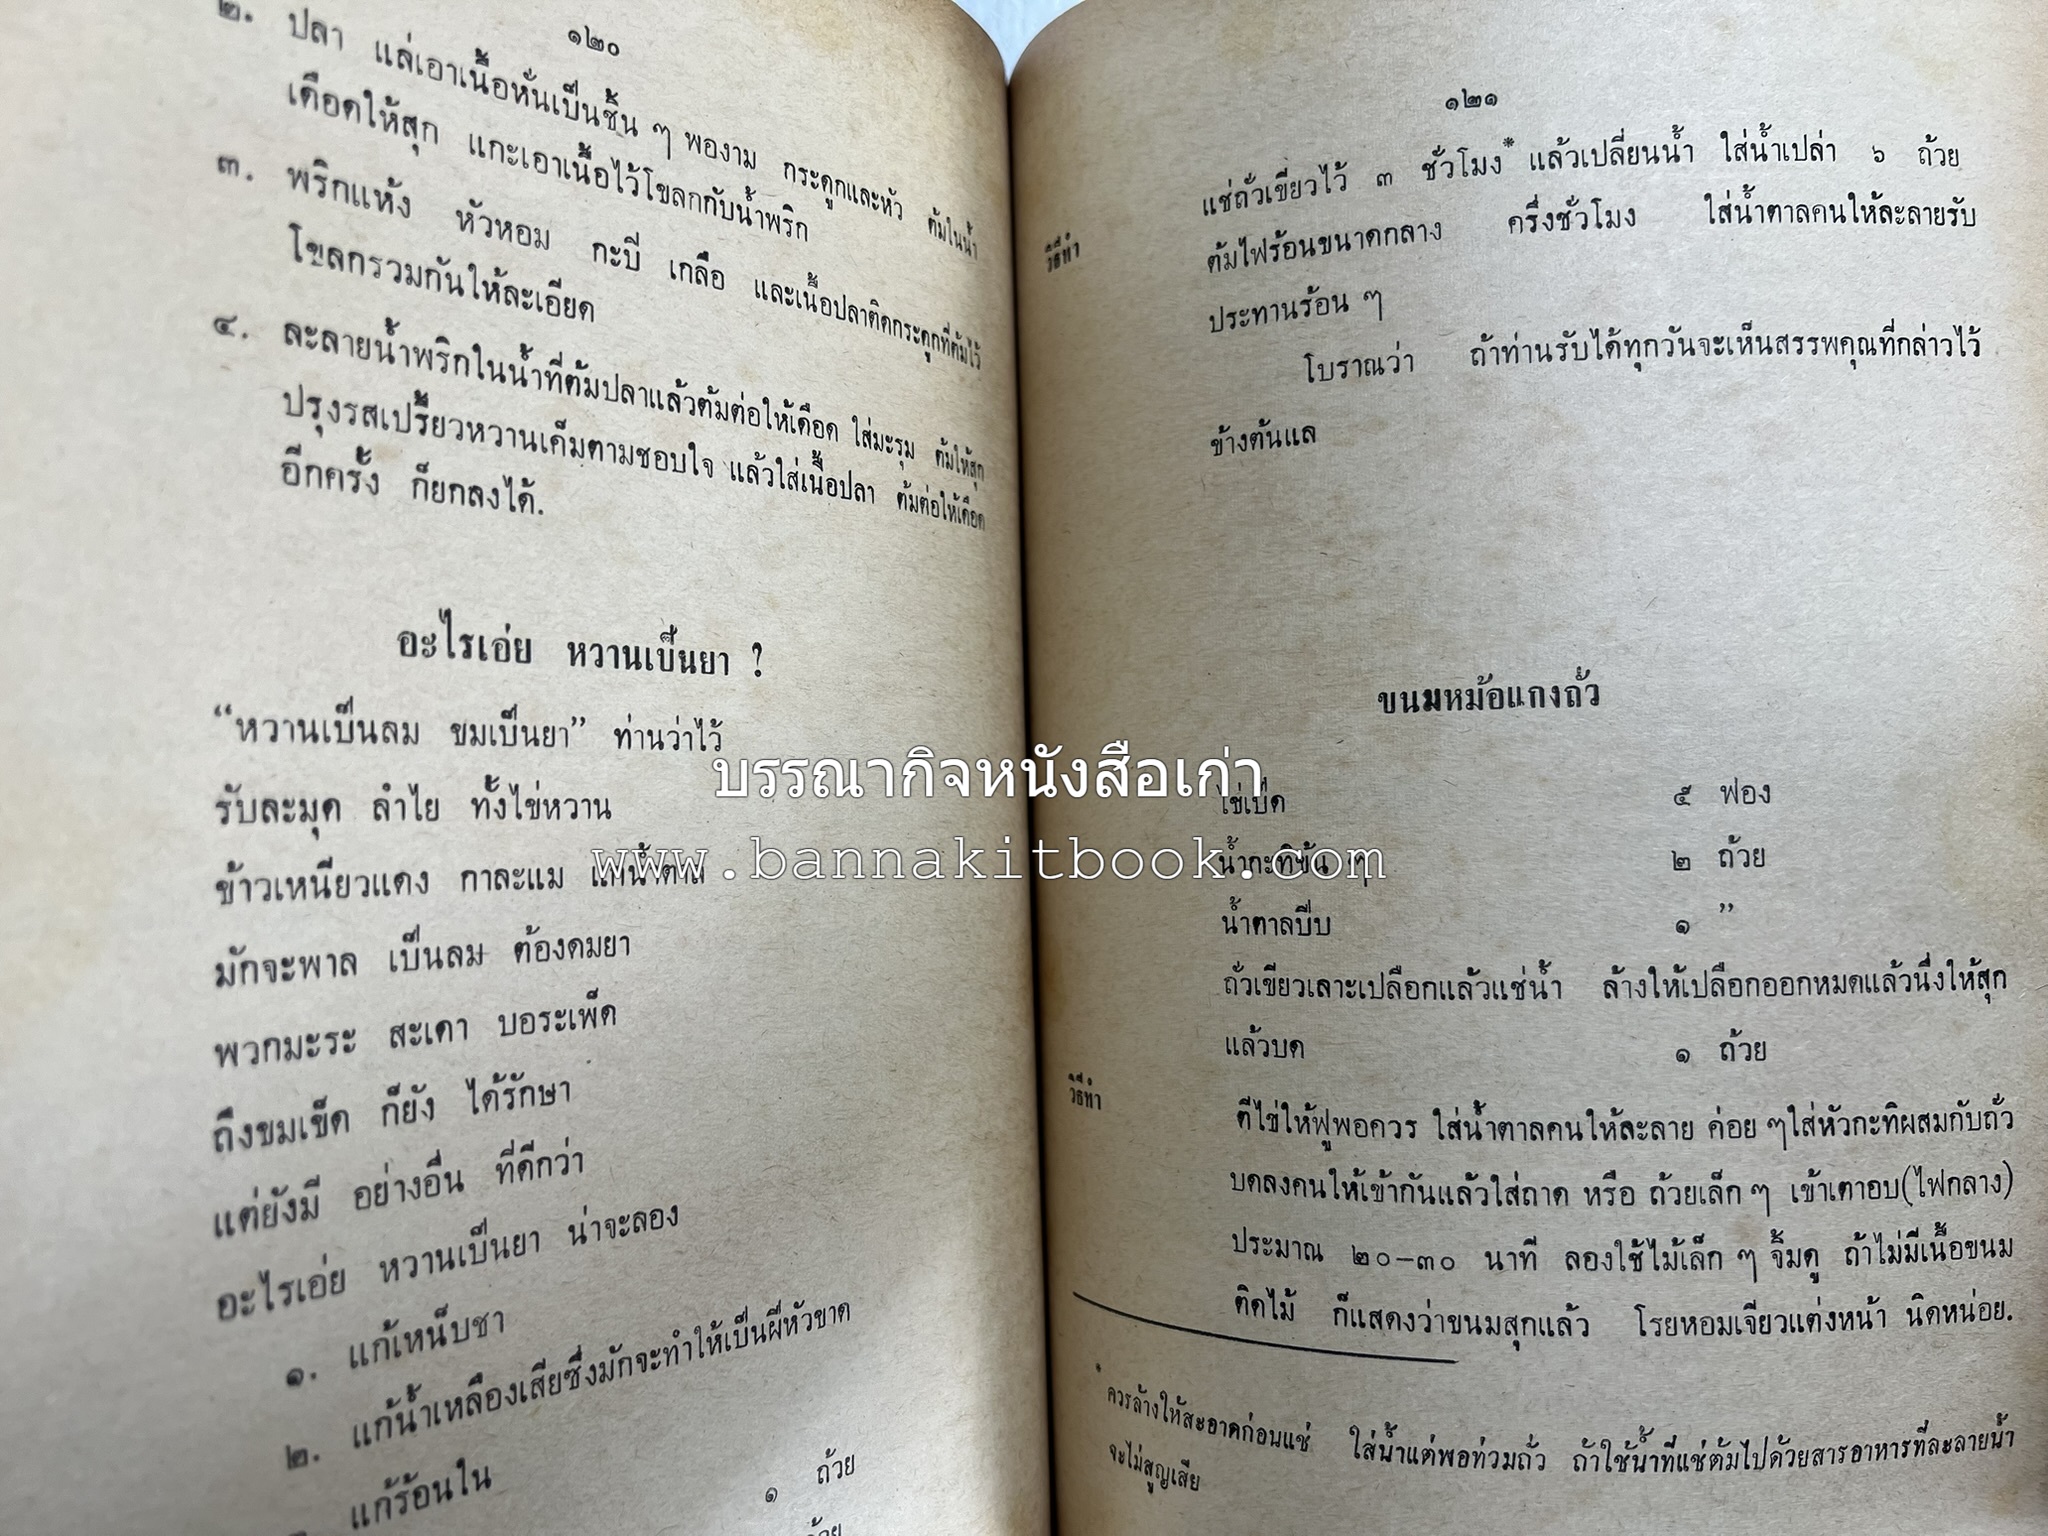 ๑๒๐
๒. ปลา แล่เอาเนื้อหั่นเป็นชิ้น ๆ พองาม กระดูกและหัว ต้มในน้ำ
เดือดให้สุก แกะเอาเนื้อไว้โขลกกับน้ำพริก
๓. พริกแห้ง หัวหอม กะปี เกลือ และเนื้อปลาติดกระดูกที่ต้มไว้
โขลกรวมกันให้ละเอียด
๔. ละลายน้ำพริกในน้ำที่ต้มปลาแล้วต้มต่อให้เดือด ใส่มะรุม ต้มให้สุก
ปรุงรสเปรี้ยวหวานเค็มตามชอบใจ แล้วใส่เนื้อปลา ต้มต่อให้เดือด
อีกครั้ง ก็ยกลงได้.
อะไรเอ่ย หวานเป็นยา ?
“หวานเป็นลม ขมเป็นยา” ท่านว่าไว้
รับละมุด ลำไย ทั้งไข่หวาน
ข้าวเหนียวแดง กาละแม แก้น้ำตาล
มักจะพาล เป็นลม ต้องดมยา
พวกมะระ สะเดา บอระเพ็ด
ถึงขมเข็ด ก็ยัง ได้รักษา
แต่ยังมี อย่างอื่น ที่ดีกว่า
อะไรเอ่ย หวานเป็นยา น่าจะลอง
๑. แก้เหน็บชา
๒. แก้น้ำเหลืองเสียซึ่งมักจะทำให้เป็นฝีหัวขาด
แก้ร้อนใน
๑ ถ้วย
๑๒๑
วิธีทำ
แช่ถั่วเขียวไว้ ๓ ชั่วโมง* แล้วเปลี่ยนน้ำ ใส่น้ำเปล่า ๖ ถ้วย
ต้มไฟร้อนขนาดกลาง ครึ่งชั่วโมง ใส่น้ำตาลคนให้ละลายรับ
ประทานร้อน ๆ
โบราณว่า ถ้าท่านรับได้ทุกวันจะเห็นสรรพคุณที่กล่าวไว้
ข้างต้นแล
ขนมหม้อแกงถั่ว
ไข่เป็ด ๕ ฟอง
น้ำกะทิข้น ๆ ๒ ถ้วย
น้ำตาลปีบ ๑ ”
ถั่วเขียวเลาะเปลือกแล้วแช่น้ำ ล้างให้เปลือกออกหมดแล้วนึ่งให้สุก
แล้วบด ๑ ถ้วย
วิธีทำ
ตีไข่ให้ฟูพอควร ใส่น้ำตาลคนให้ละลาย ค่อย ๆใส่หัวกะทิผสมกับถั่ว
บดลงคนให้เข้ากันแล้วใส่ถาด หรือ ถ้วยเล็ก ๆ เข้าเตาอบ(ไฟกลาง)
ประมาณ ๒๐–๓๐ นาที ลองใช้ไม้เล็ก ๆ จิ้มดู ถ้าไม่มีเนื้อขนม
ติดไม้ ก็แสดงว่าขนมสุกแล้ว โรยหอมเจียวแต่งหน้า นิดหน่อย.
* ควรล้างให้สะอาดก่อนแช่ ใส่น้ำแต่พอท่วมถั่ว ถ้าใช้น้ำที่แช่ต้มไปด้วยสารอาหารที่ละลายน้ำ
จะไม่สูญเสีย
บรรณากิจหนังสือเก่า
www.bannakitbook.com